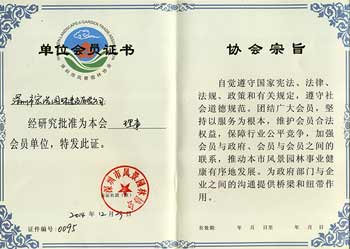 单位会员证书
经研究批准为本会 理事
会员单位，特发此证。
深圳市风景园林协会
2014 12 29
证件编号：0095
协会宗旨
自觉遵守国家宪法、法律、
法规、政策和有关规定，遵守社
会道德规范。团结广大会员，坚
持以服务为根本，维护会员合法
权益，保障行业公平竞争，加强
会员与政府、会员与会员之间的
联系，推动本市风景园林事业健
康有序地发展。为政府部门与企
业之间的沟通提供桥梁和纽带作
用。
有效期： 年 月 日至 年 月 日